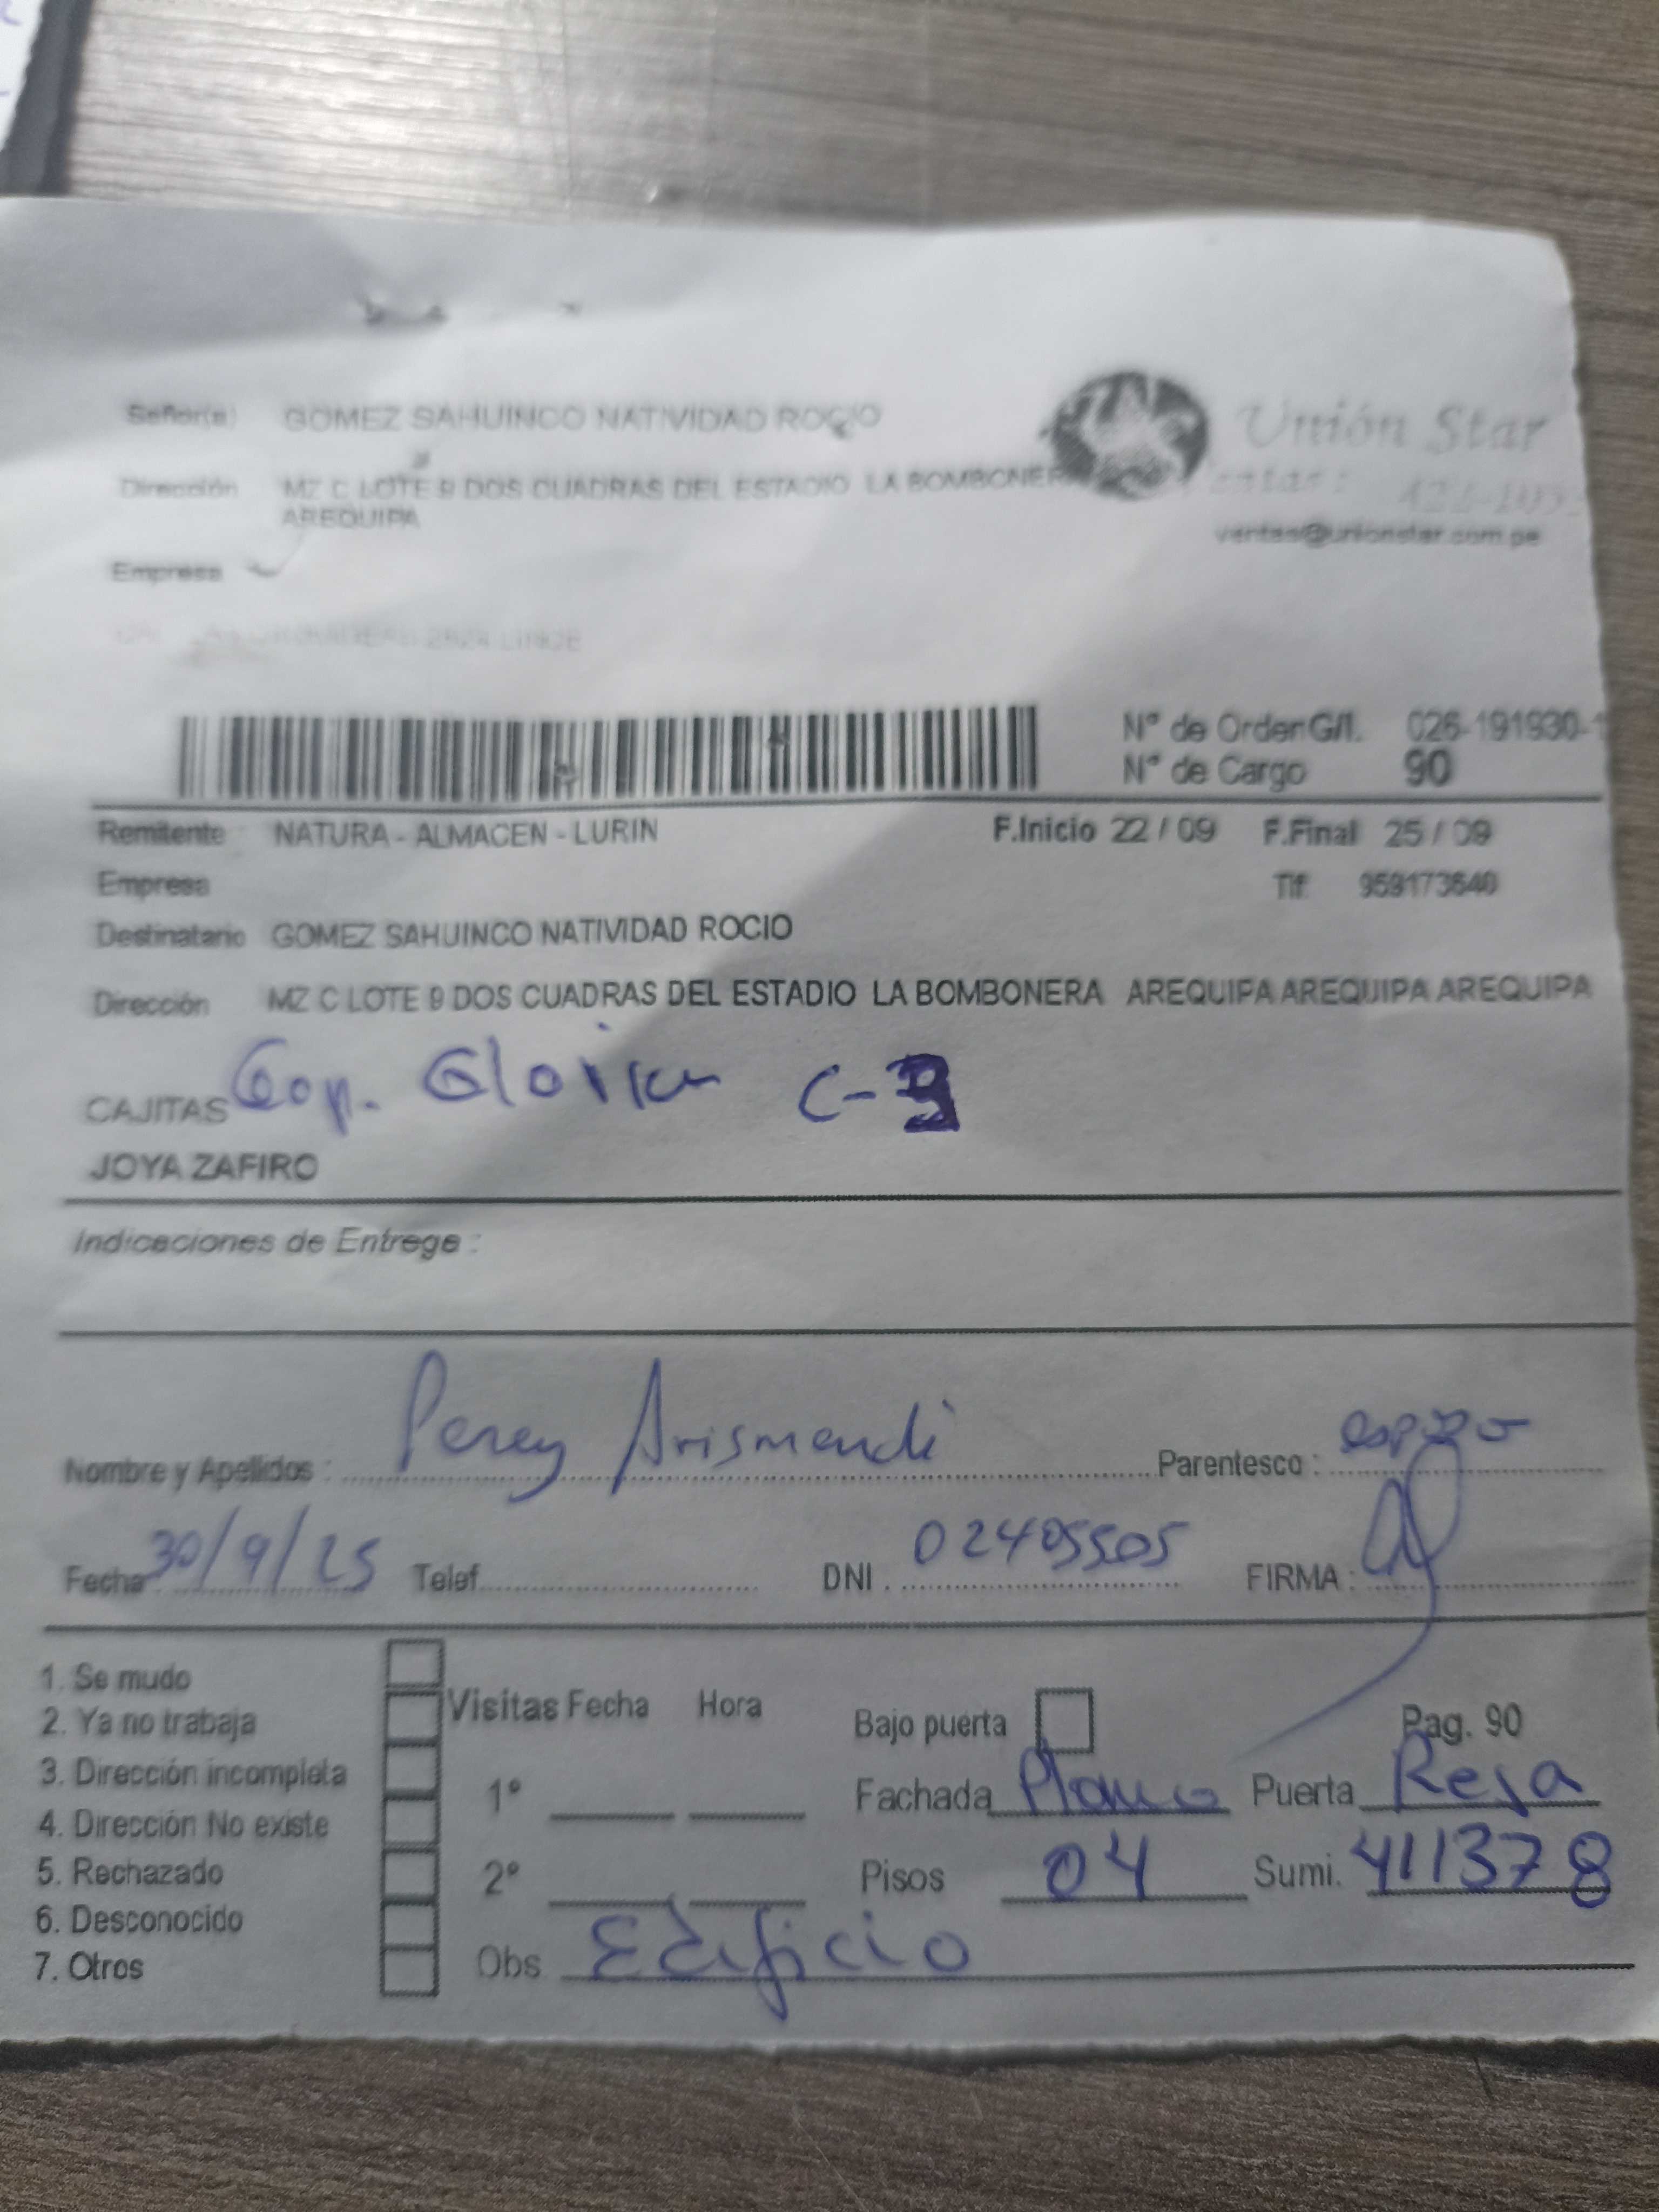 Señor(s) GOMEZ SAHUINCO NATIVIDAD ROCIO
Unión Star
Dirección MZ C LOTE 9 DOS CUADRAS DEL ESTADIO LA BOMBONERA
AREQUIPA
ventas@unionstar.com.pe
Empresa
N° de Orden G/I. 026-191930-1
N° de Cargo 90
Remitente NATURA - ALMACEN - LURIN F.Inicio 22 / 09 F.Final 25 / 09
Empresa Tlf: 959173640
Destinatario GOMEZ SAHUINCO NATIVIDAD ROCIO
Dirección MZ C LOTE 9 DOS CUADRAS DEL ESTADIO LA BOMBONERA AREQUIPA AREQUIPA AREQUIPA
CAJITAS C-9
JOYA ZAFIRO
Indicaciones de Entrega :
Nombre y Apellidos : Percy Arismendi Parentesco : esposo
Fecha 30/9/25 Telef. DNI . 02405505 FIRMA :
1. Se mudo
2. Ya no trabaja
3. Dirección incompleta
4. Dirección No existe
5. Rechazado
6. Desconocido
7. Otros
Visitas Fecha Hora
1°
2°
Bajo puerta Pag. 90
Fachada Puerta Reja
Pisos 04 Sumi. 411378
Obs Edificio